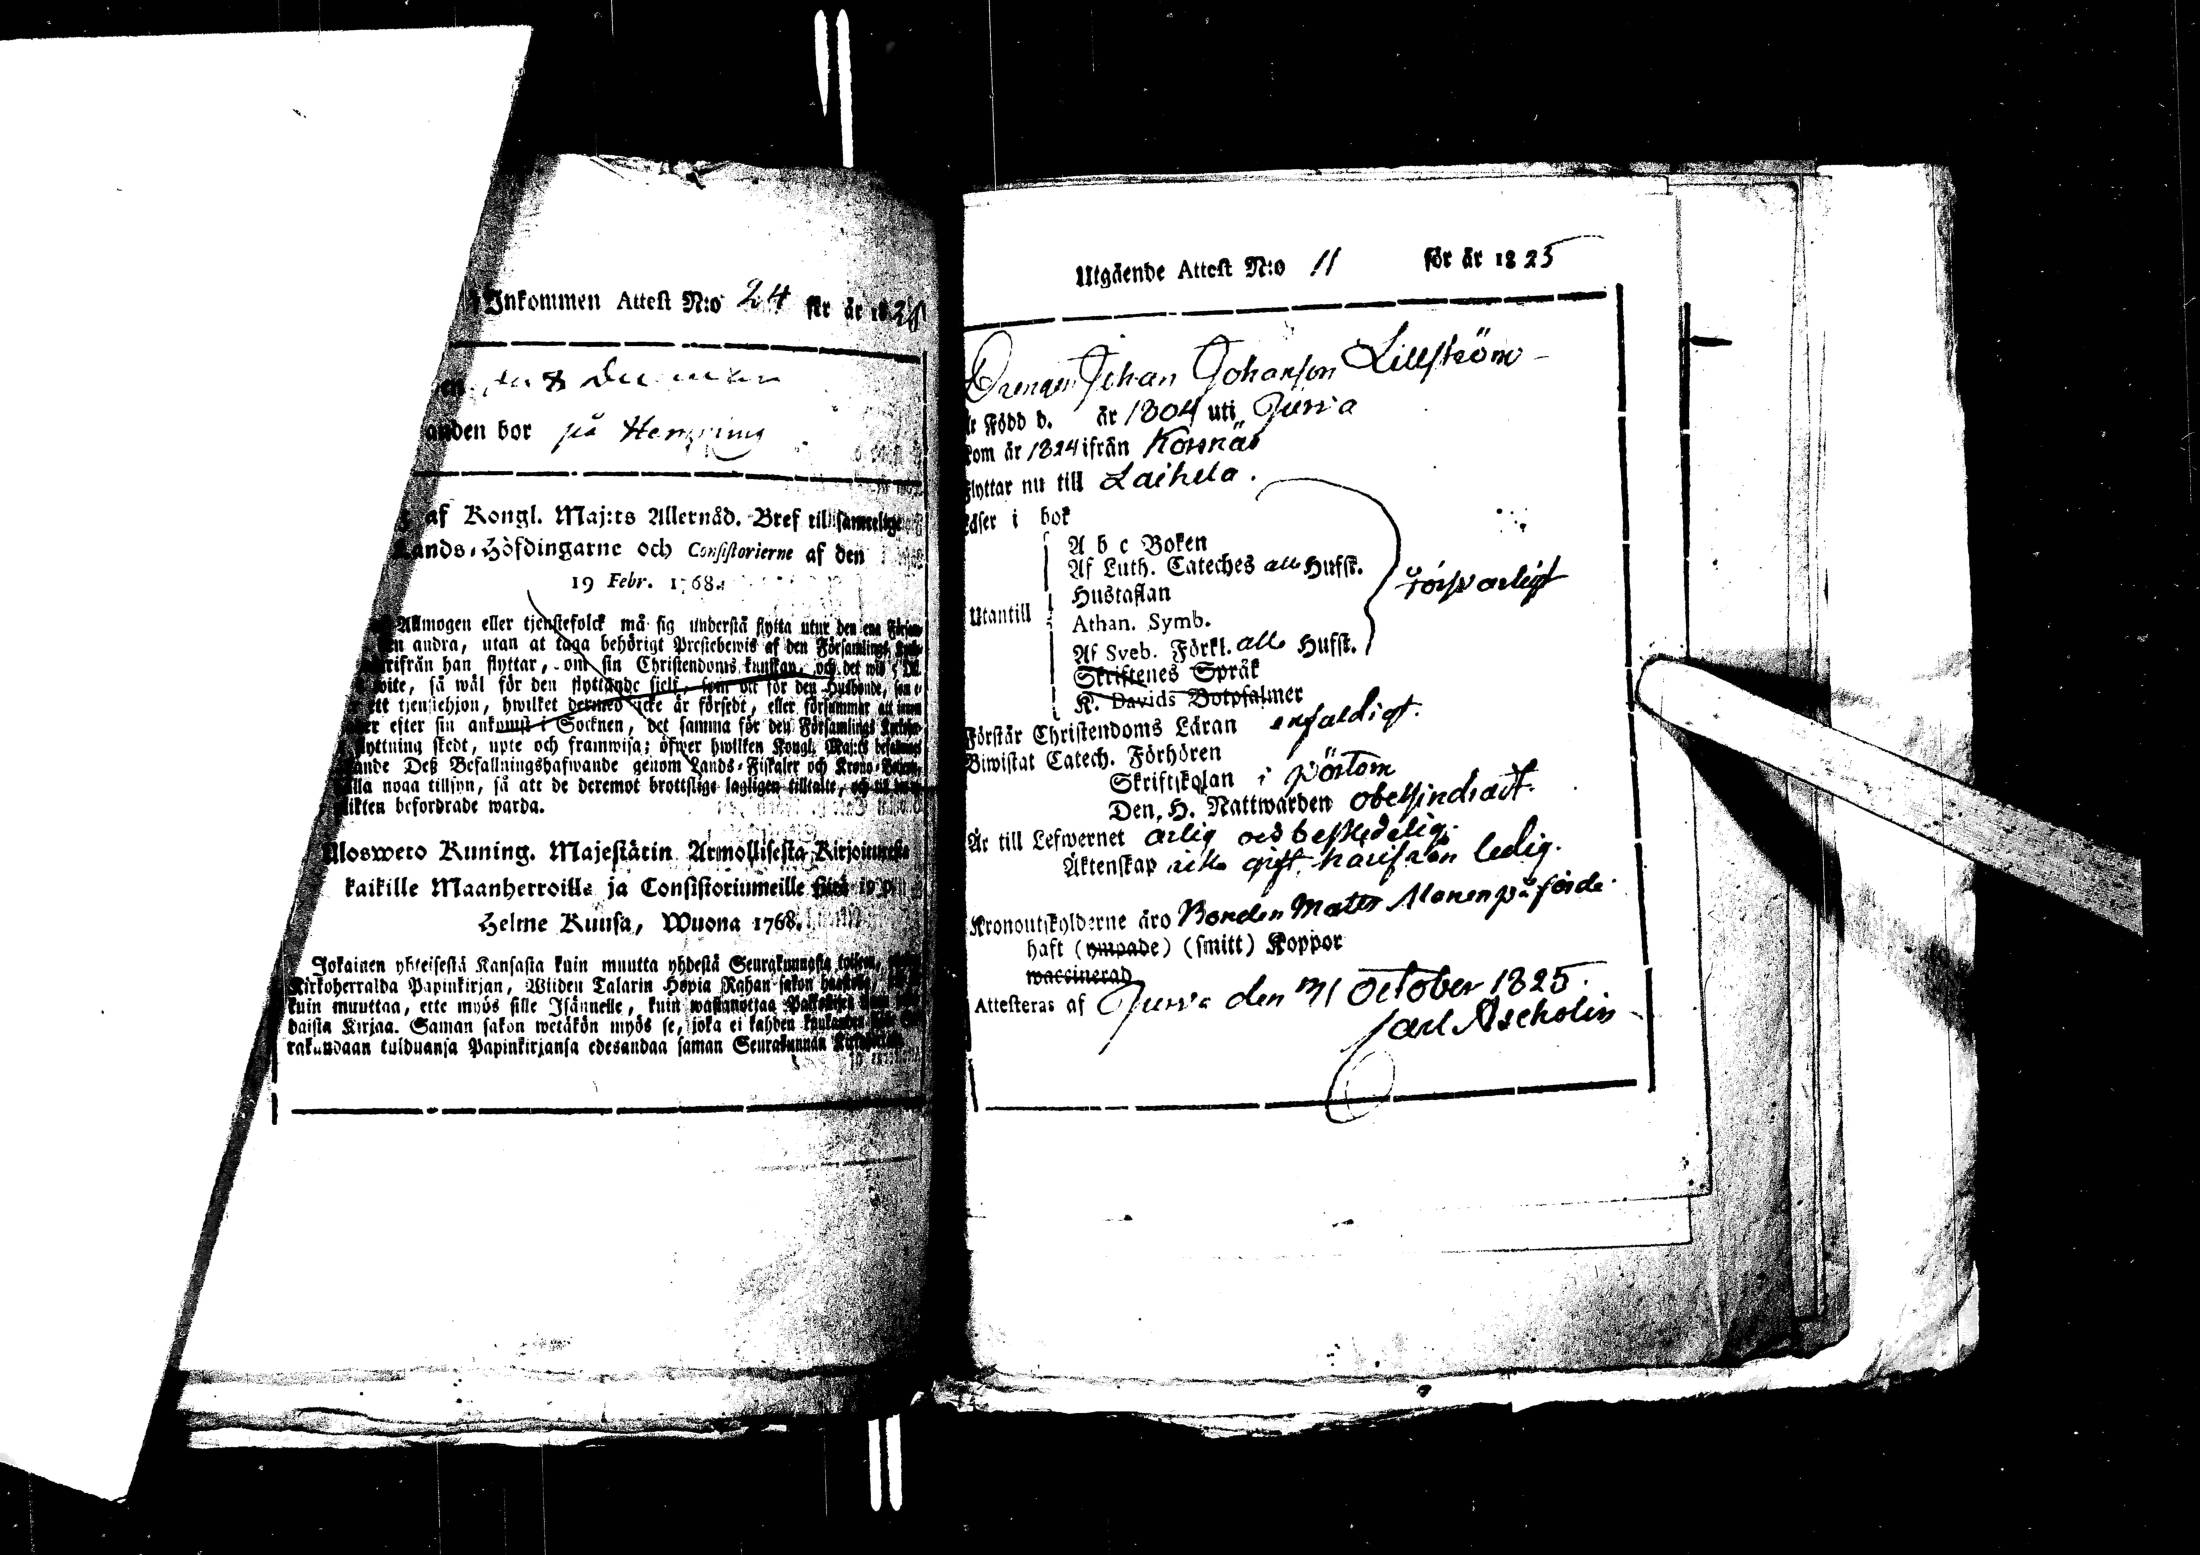 Inkommen Attest N:o 24 för år 18
på
anden bor på
af Kongl. Maj:ts Allernåd. Bref till samtelige
Lands-Höfdingarne och Consistorierne af den
19 Febr. 1768.
Allmogen eller tjenstefolck må sig understå flytta utur den ena Försam-
en andra, utan at taga behörigt Prestebewis af den Församlings
rifrån han flyttar, om sin Christendoms kunskap, och det wid 5 Dal.
wite, så wäl för den flyttande sielf, som ock för den Husbonde, som
ett tjenstehjon, hwilket dermed icke är försedt, eller försummar att innom
er efter sin ankomst i Socknen, det samma för den Församlings
flyttning skedt, upte och framwisa; öfwer hwilken Kongl. Maj:ts befallnings
ande Deß Befallningshafwande genom Lands-Fiskaler och Krono-
lla noga tillsyn, så att de deremot brottslige lagligen tilltalte, och til
likten befordrade warda.
Ulosweto Kuning. Majestätin Armollisesta Kirjoituxesta
kaikille Maanherroille ja Consistoriumeille
Helme Kuusa, Wuona 1768.
Jokainen yhteisestä Kansasta kuin muutta yhdestä Seurakunnasta toiseen,
Kirkoherralda Papinkirjan, Wiiden Talarin Hopia Rahan sakon haastolla,
kuin muuttaa, ette myös sille Isännelle, kuin wastanottaa
daista Kirjaa. Saman sakon wetäkön myös se, joka ei kahden
rakundaan tulduansa Papinkirjansa edesandaa saman Seurakunnan
Utgående Attest N:o 11 för år 1825
Drengen Johan Johanson Lillström
är Född d. år 1804 uti Jurva
kom år 1824 ifrån Korsnäs
Flyttar nu till Laihela.
Läser i bok
A b c Boken
Af Luth. Cateches alla Hufst.
Hustaflan
försvarligt
Utantill
Athan. Symb.
Af Sveb. Förkl. alla Hufst.
Skriftenes Språk
K. Davids Botpsalmer
Förstår Christendoms Läran enfaldigt.
Biwistat Catech. Förhören
Skriftskolan i Pörtom
Den H. Nattwarden obehindradt.
Är till Lefwernet ärlig och beskedelig.
Äktenskap icke gift, härifrån ledig.
Kronoutskylderne äro Bonden Matts
haft (ympade) (smitt) Koppor
waccinerad
Attesteras af Jurva den 31 October 1825.
Carl Ascholin